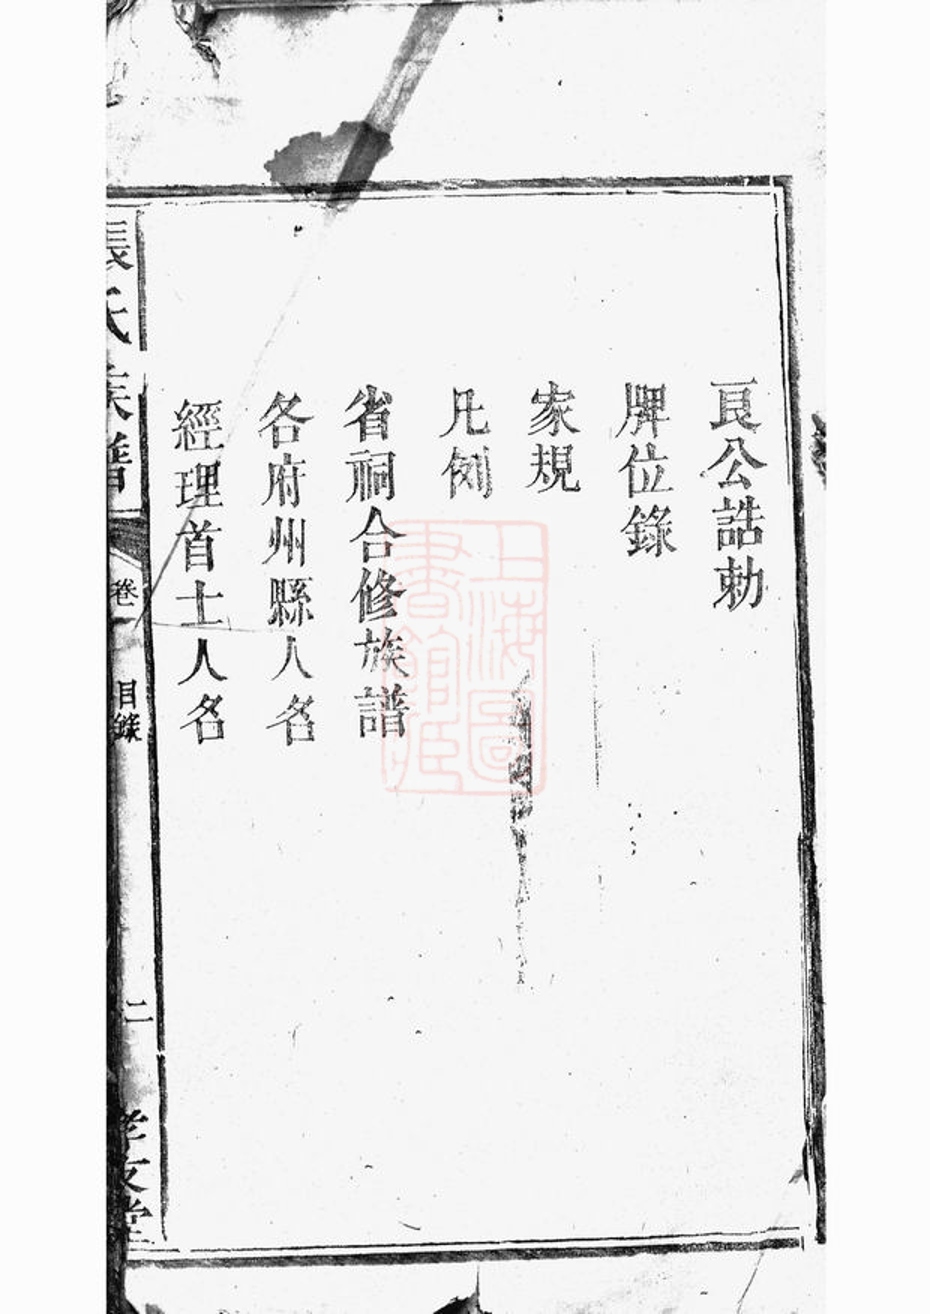 良公誥勅
牌位錄
家規
凡例
省祠合修族譜
各府州縣人名
經理首士人名
張氏族譜
卷一
目錄
二
孝友堂
上海圖書館藏